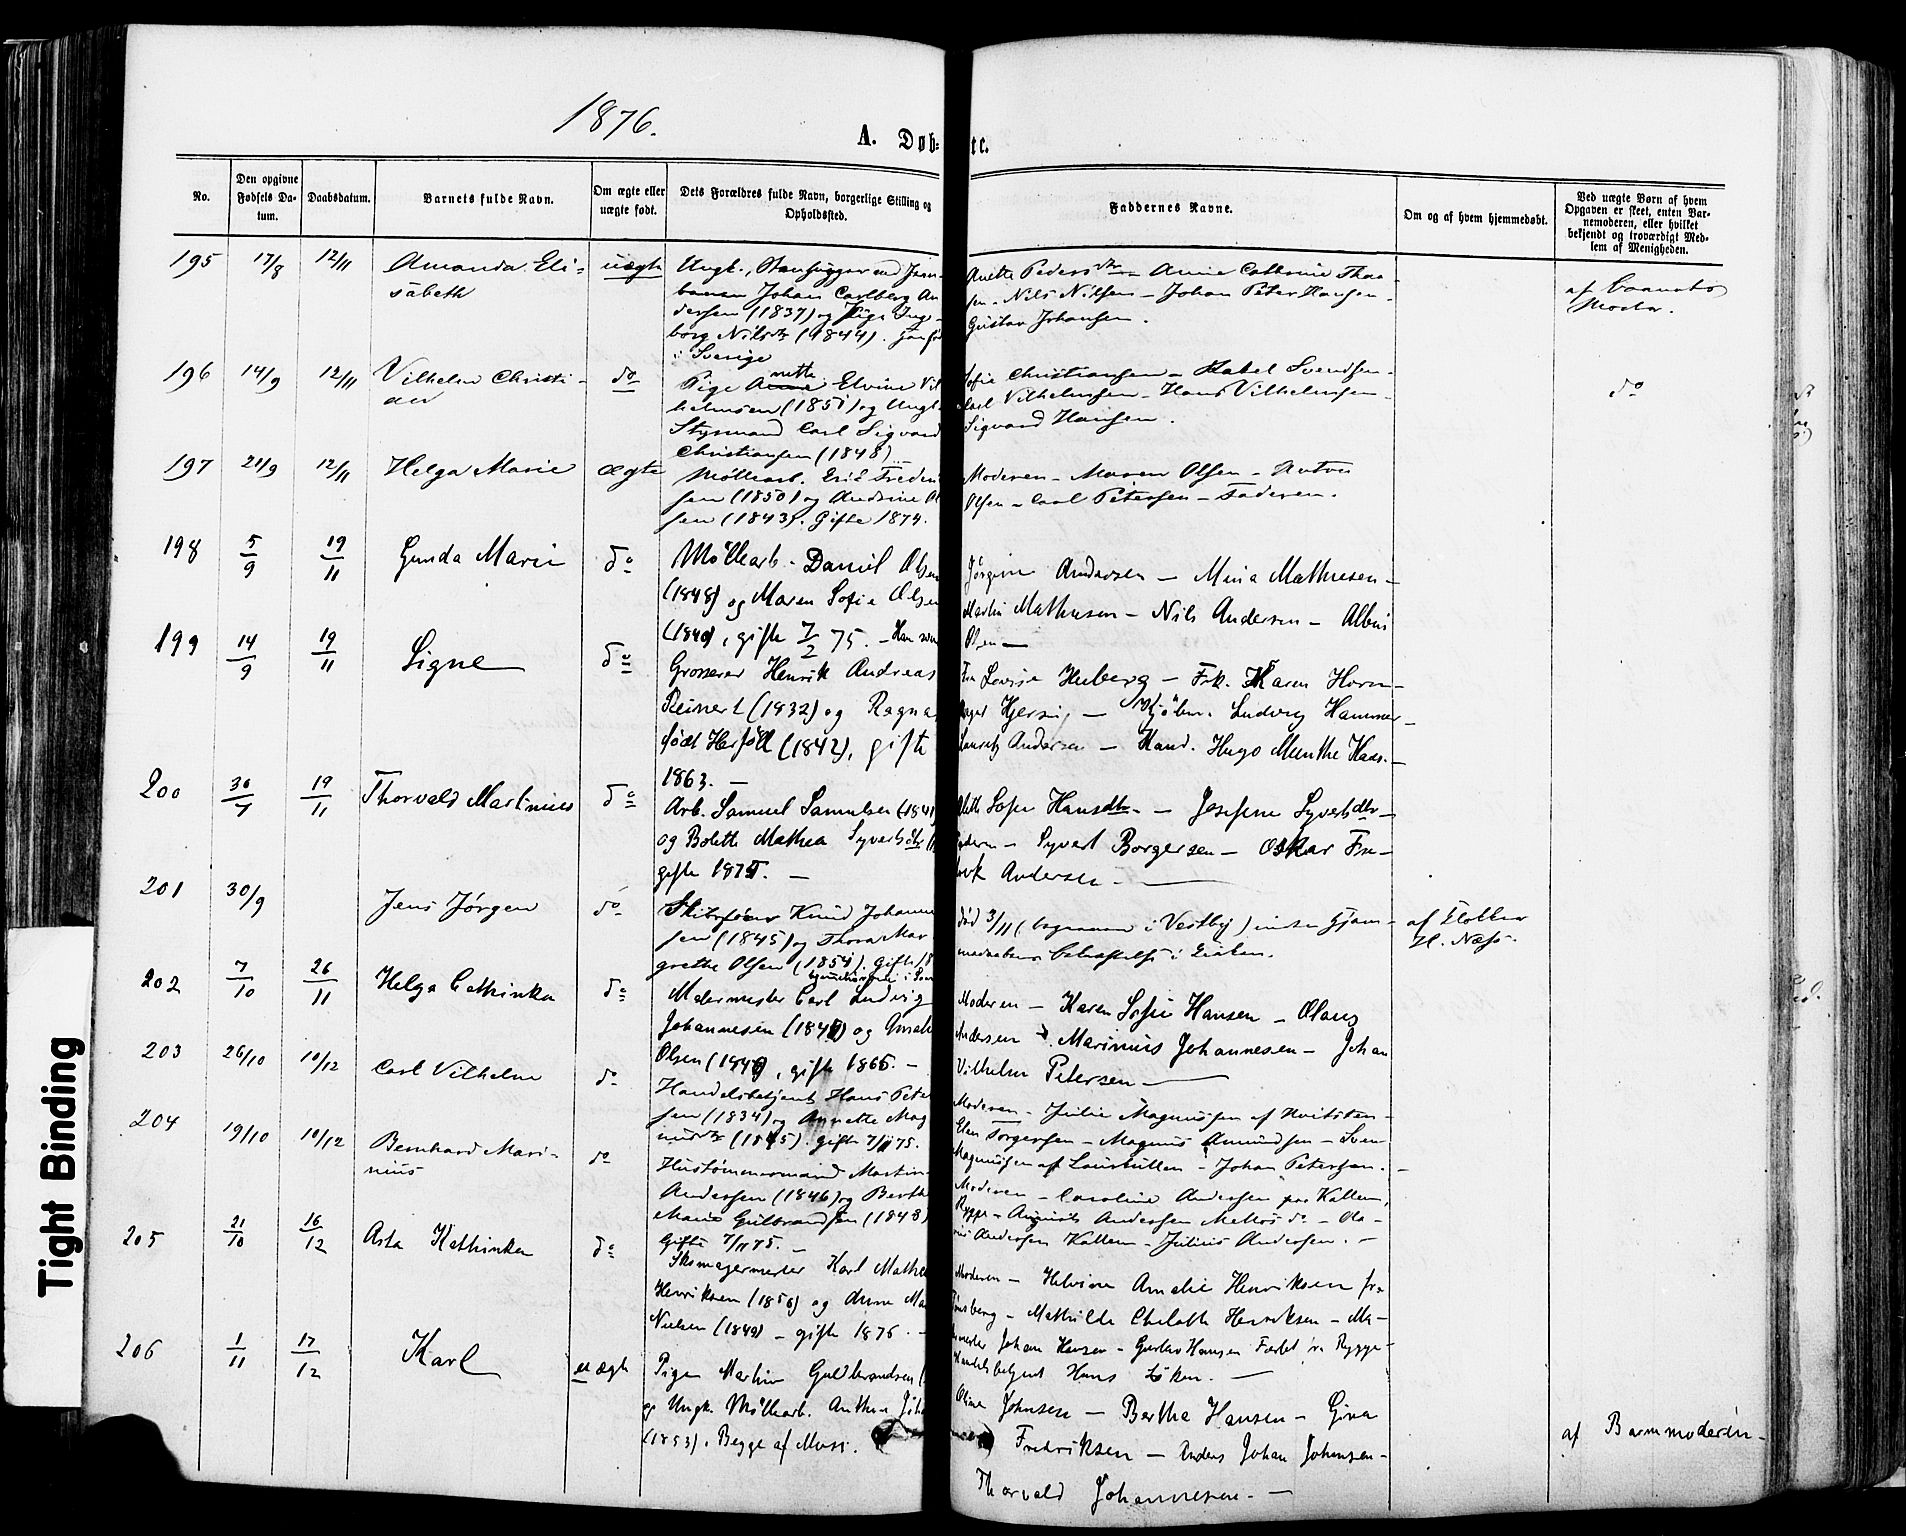 1876.
A. Døb-
te.
No.
Den opgivne Fødsels Da-
tum.
Daabsdatum.
Barnets fulde Navn.
Om ægte eller
uægte født.
Dets Forældres fulde Navn, borgerlige Stilling og
Opholdssted.
Faddernes Navne.
Om og af hvem hjemmedøbt.
Ved uægte Børn af hvem
Opgaven er skeet, enten Bar-
nemoderen, eller hvilket
bekjendt og troværdigt Med-
lem af Menigheden.
195 17/8 12/11 Amanda Eli-
sabeth
uægte
Ungk., Stenhugger ved Jern-
banen Johan Carlberg An
dersen (1837) og Pige Inge-
borg Nilsdtr (1844).
i Sverige
Anette Pedersdtr — Anne Cathrine Thor
sen - Nils Nilsen — Johan Peter Hansen -
Gustav Johansen -
af Barnets
Moder.
196 14/9 12/11 Vilhelm Christi-
an
do
nette
Pige Anne Elvine Vil
helmsen (1851) og Ungk.
Styrmand Carl Sigvard
Christiansen (1848)
Sofie Christiansen — Kabel Svendsen -
Carl Vilhelmsen - Hans Vilhelmsen -
Sigvard Hansen.
do
197 21/9 12/11 Helga Marie
ægte
Møllearb. Fredrik
sen (1850) og Andrine Ol
sen (1843). Gifte 1874.
Moderen - Maren Olsen -
Olsen - Carl Petersen - Faderen.
198 5/9 19/11 Gunda Marie
do
Møllearb. Daniel Olsen
(1848) og Maren Sofie Olsen
(1840), gifte 7/2 75. -
Jørgine Andersen — Mina Mathiesen -
Martin Mathiesen — Nils Andersen — Albin
Olsen —
199 14/9 19/11 Signe
do
Grosserer Henrik Andreas
Reinert (1832) og Ragna
født Herføll (1842), gifte
1863. —
Fru Lovise Huberg — Frk. Karen Horn-
Kjøbm. Ludvig Hammer -
Lauritz Andersen — Kand. Hugo Munthe Kaas. -
200 30/7 19/11 Thorvald Martinius
do
Arb. Samuel Samuelsen (1841
og Bolette Mathea Syvertsdtr
gifte 1875. —
Sofie Hansdtr. — Josefine Syvertsdtr —
Syvert Borgersen — Oskar Fre-
drik Andersen. —
201 30/9 Jens Jørgen
do
Skibsfører Knud Johanne
sen (1845) og Thora Mar
grethe Olsen (1851). Gifte 18
død 3/11 (begraven i Vestby)
i Kirken.
af
H. Næss.
202 7/10 26/11 Helga Cathinka
do
Malermester Carl Ludvig
Johannesen (1842) og Amalie
Olsen (1840), gifte 1865. —
Moderen — Karen Sofie Hansen — Olaus
Andersen — Marinius Johannesen — Johan
Vilhelm Petersen —
203 26/10 10/12 Carl Vilhelm
do
Handelsbetjent Hans Peter
sen (1834) og Annette Mag
nusdtr (1845). gifte 7/11 75.
Moderen - Julie Magnussen af Hvitsten -
Torgersen — Magnus Amundsen — Sven
Magnussen af - Johan Petersen. -
204 19/10 10/12 Bernhard Mari-
nius
do
Hustømmermand Martin
Andersen (1846) og Berthe
Marie Gulbrandsen (1848)
Gifte 7/11 75. —
Moderen — Caroline Andersen paa Kallem,
Rygge — August Andersen Mellos do — Ma-
Andersen Kallem - Julius Andersen. —
205 21/10 16/12 Asta Kathinka
do
Skomagermester Karl Mathe
Henriksen (1850) og Anne Mar
Nielsen (1849) — gifte 1876. —
Moderen — Helvine Amalie Henriksen fra
Tønsberg — Mathilde Charlotte Henriksen — Ma-
lermester Johan Hansen — Gustav Hansen fra Rygge -
Handelsbetjent Hans Løken. —
206 1/11 17/12 Karl
uægte
Pige Martine Guldbrandsen (
og Ungk. Møllearb. Anthon Joh
(1853). Begge af Moss.
Oline Johnsen — Berthe Hansen — Gina
Fredriksen — Anders Johan Johansen -
Thorvald Johannesen. —
af Barnemoderen —
Tight Binding